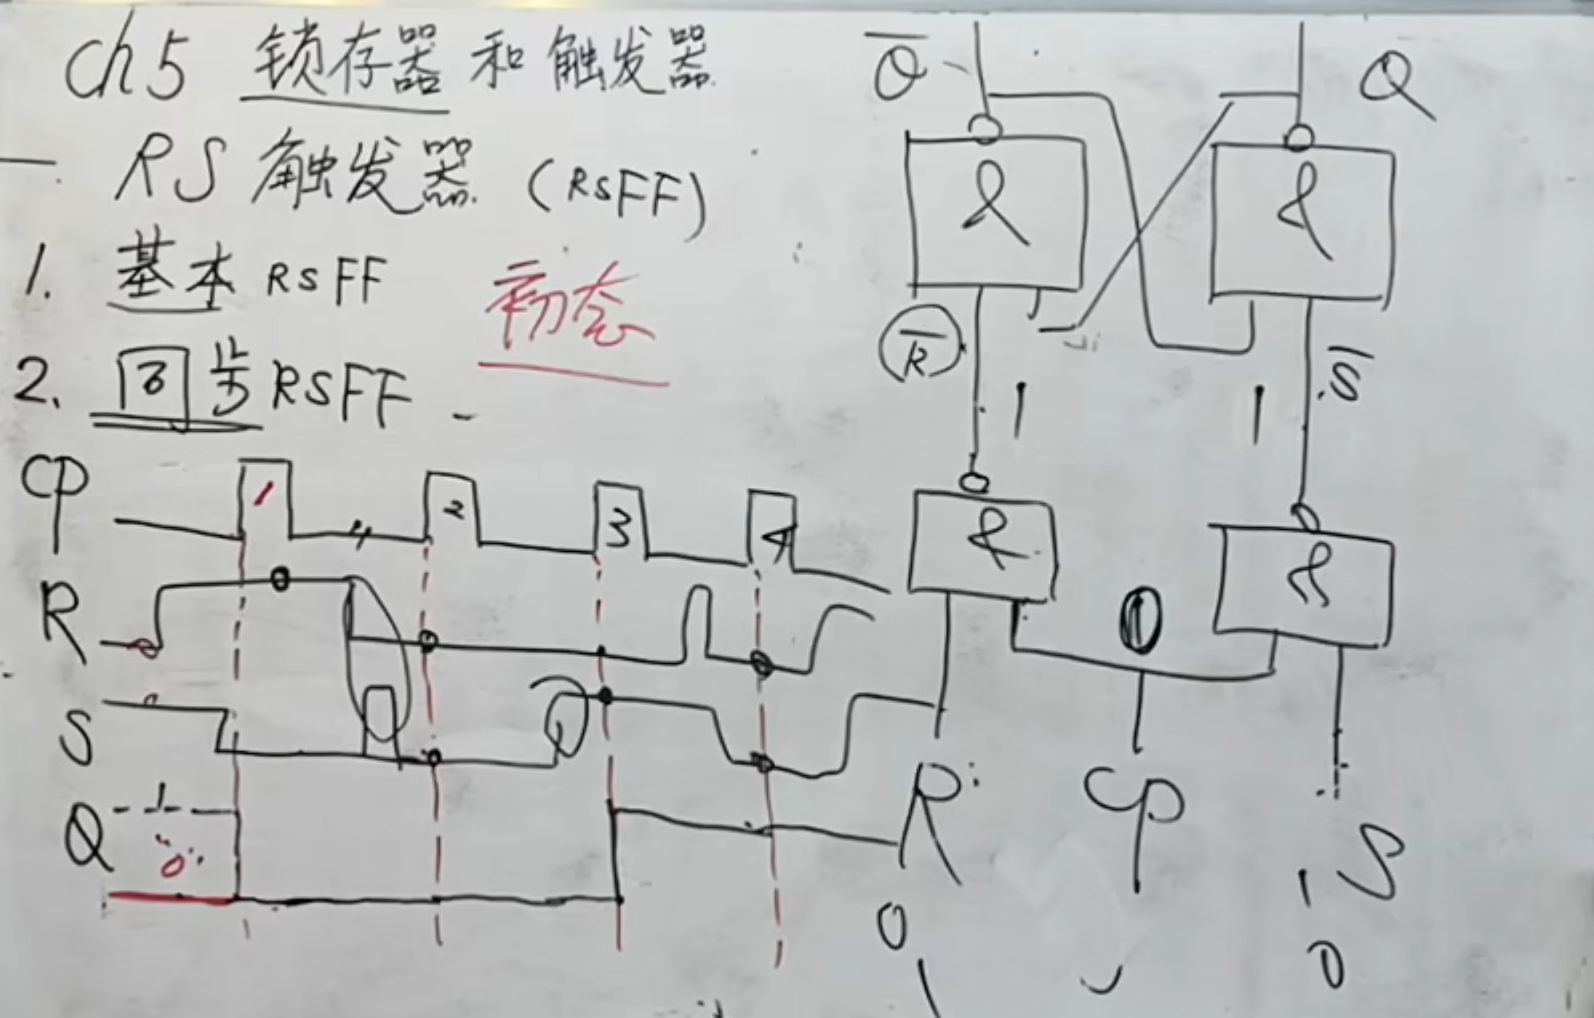 ch5 锁存器和触发器
一 RS触发器 (RSFF)
1. 基本 RSFF
初态
2. 同步RSFF
CP 1 2 3 4
R
S
Q 1
"0"
Q̅ Q
& &
R̅ 1 1 S̅
& &
0
R CP S
0 1
0